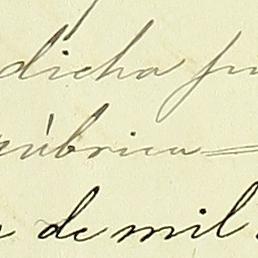 dicha
rúbrica=
de mil